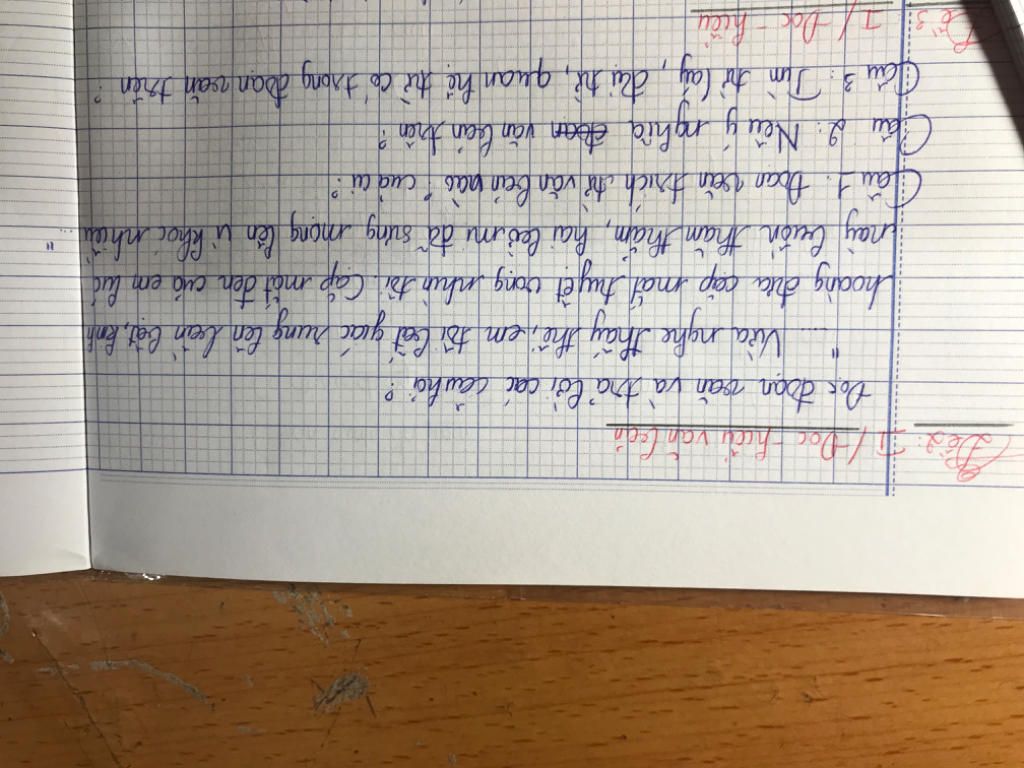 Đề 2:
I/ Đọc - hiểu văn bản
Đọc đoạn văn và trả lời các câu hỏi?
"..... Vừa nghe thấy thế, em tôi bất giác rung lên bần bật, kinh
hoàng đưa cặp mắt tuyệt vọng nhìn tôi. Cặp mắt đen của em lúc
này buồn thăm thẳm, hai bờ mi đã sưng mọng lên vì khóc nhiều ..."
Câu 1: Đoạn văn trích từ văn bản nào? của ai?
Câu 2: Nêu ý nghĩa văn bản trên?
Câu 3: Tìm từ láy, đại từ, quan hệ từ có trong đoạn văn trên?
Đề 3
I/ Đọc - hiểu